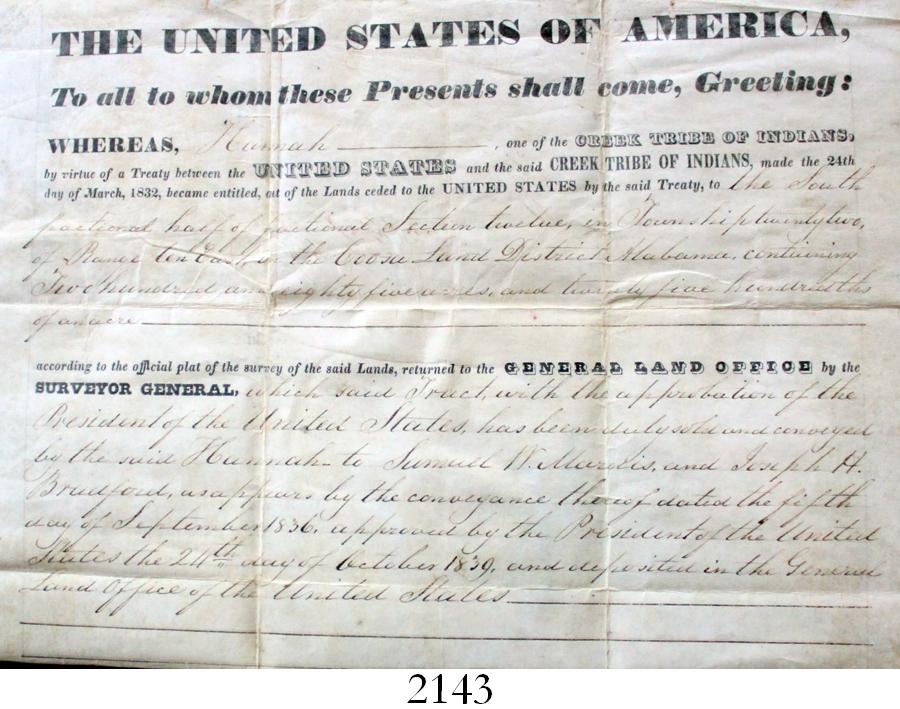 THE UNITED STATES OF AMERICA,
To all to whom these Presents shall come, Greeting:
WHEREAS, Hannah , one of the CREEK TRIBE OF INDIANS,
by virtue of a Treaty between the UNITED STATES and the said CREEK TRIBE OF INDIANS, made the 24th
day of March, 1832, became entitled, out of the Lands ceded to the UNITED STATES by the said Treaty, to the South
fractional half of fractional Section twelve, in Township twenty two,
of Range ten East, in the Coosa Land District Alabama, containing
Two hundred and eighty five acres, and twenty five hundredths
of an acre
according to the official plat of the survey of the said Lands, returned to the GENERAL LAND OFFICE by the
SURVEYOR GENERAL, which said Tract, with the approbation of the
President of the United States, has been duly sold and conveyed
by the said Hannah to Samuel W. Mardis, and Joseph H.
Bradford, as appears by the conveyance thereof dated the fifth
day of September 1836, approved by the President of the United
States the 24th day of October 1839, and deposited in the General
Land Office of the United States
2143